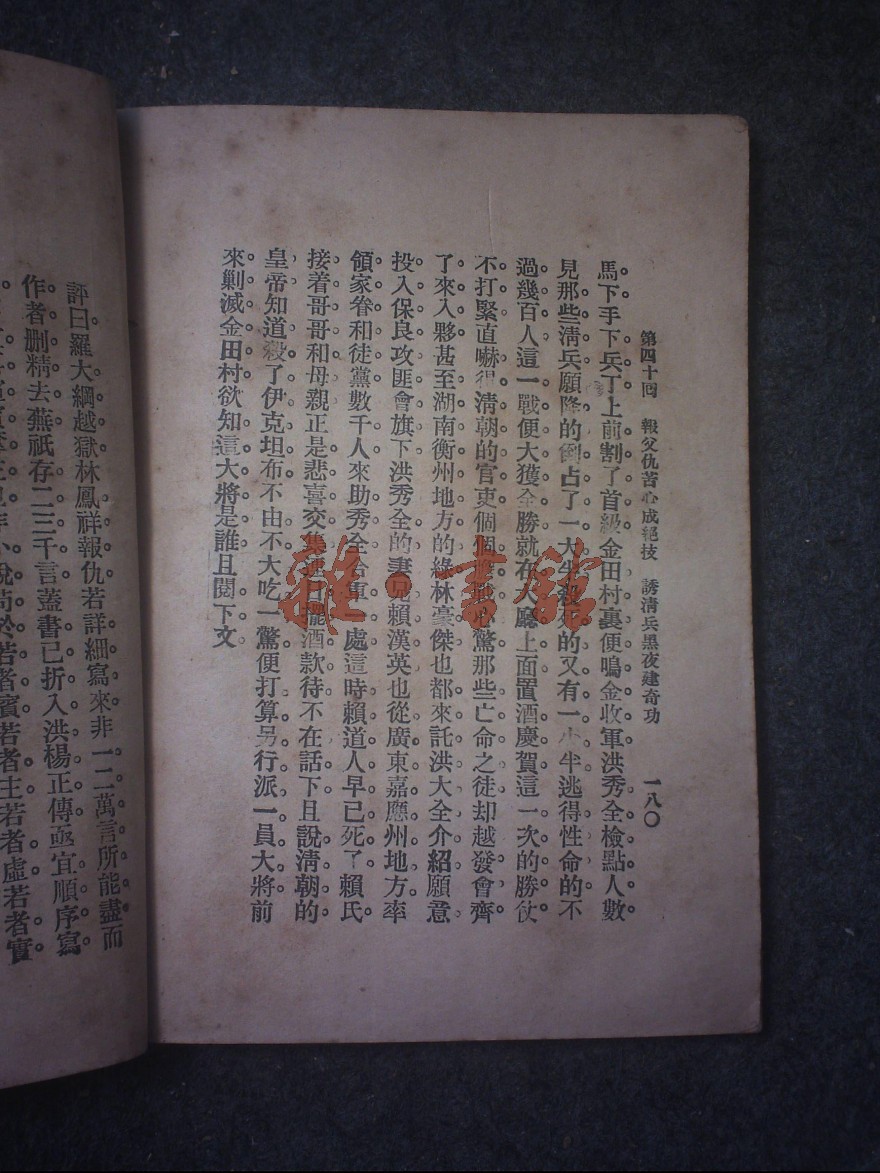 第四十回　報父仇苦心成絕技　誘清兵黑夜建奇功　一八〇
馬下手下兵丁上前割了首級金田村裏便鳴金收軍洪秀全檢點人數
見那些清兵願降的倒占了一大半殺死的又有一小半逃得性命的不
過幾百人這一戰便大獲全勝就在大廳上面置酒慶賀這一次的勝仗
不打緊直嚇得清朝的官吏個個膽戰心驚那些亡命之徒却越發會齊
了來入夥甚至湖南衡州地方的綠林豪傑也都來託洪大全介紹願意
投入保良攻匪會旗下洪秀全的妻兄賴漢英也從廣東嘉應州地方率
領家眷和徒黨數千人來助秀全合軍一處這時賴道人早已死了賴氏
接着哥哥和母親正是悲喜交集連日擺酒款待不在話下且說清朝的
皇帝知道殺了伊克坦布不由不大吃一驚便打算另行派一員大將前
來剿滅金田村欲知這大將是誰且閱下文
評曰羅大綱越獄林鳳祥報仇若詳細寫來非一二萬言所能盡而
作者刪精去蕪祇存二三千言蓋書已折入洪楊正傳亟宜順序寫
小說苟於若者賓若者主若者虛若者實
雜·書館